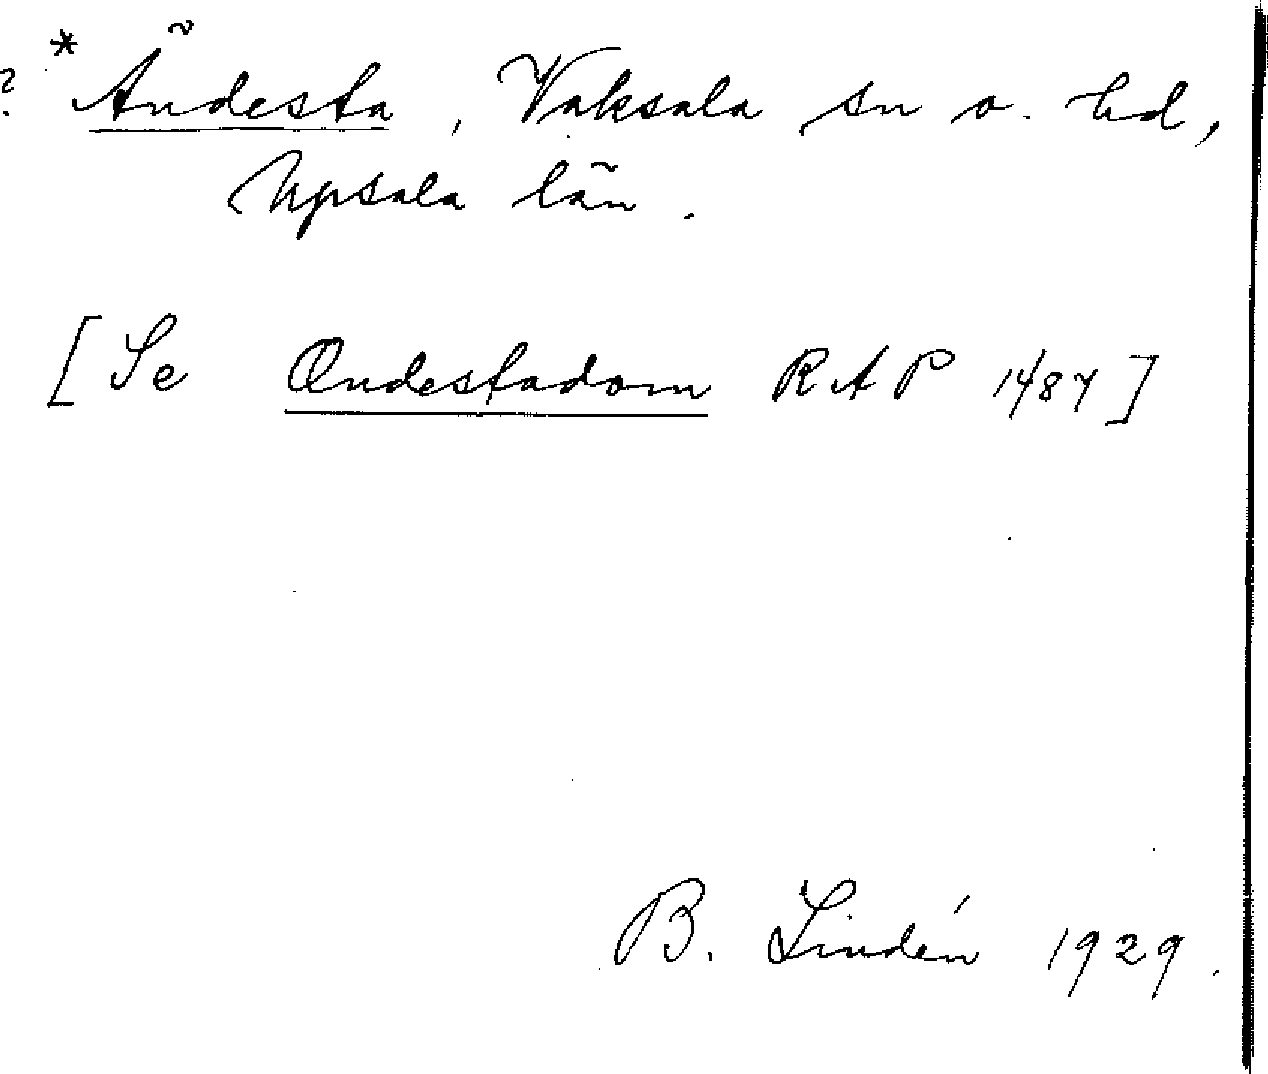 ? *Ändesta, Vaksala sn o. hd,
Upsala län.
[Se Œndestadom RAP 1487]
B. Lindén 1929.